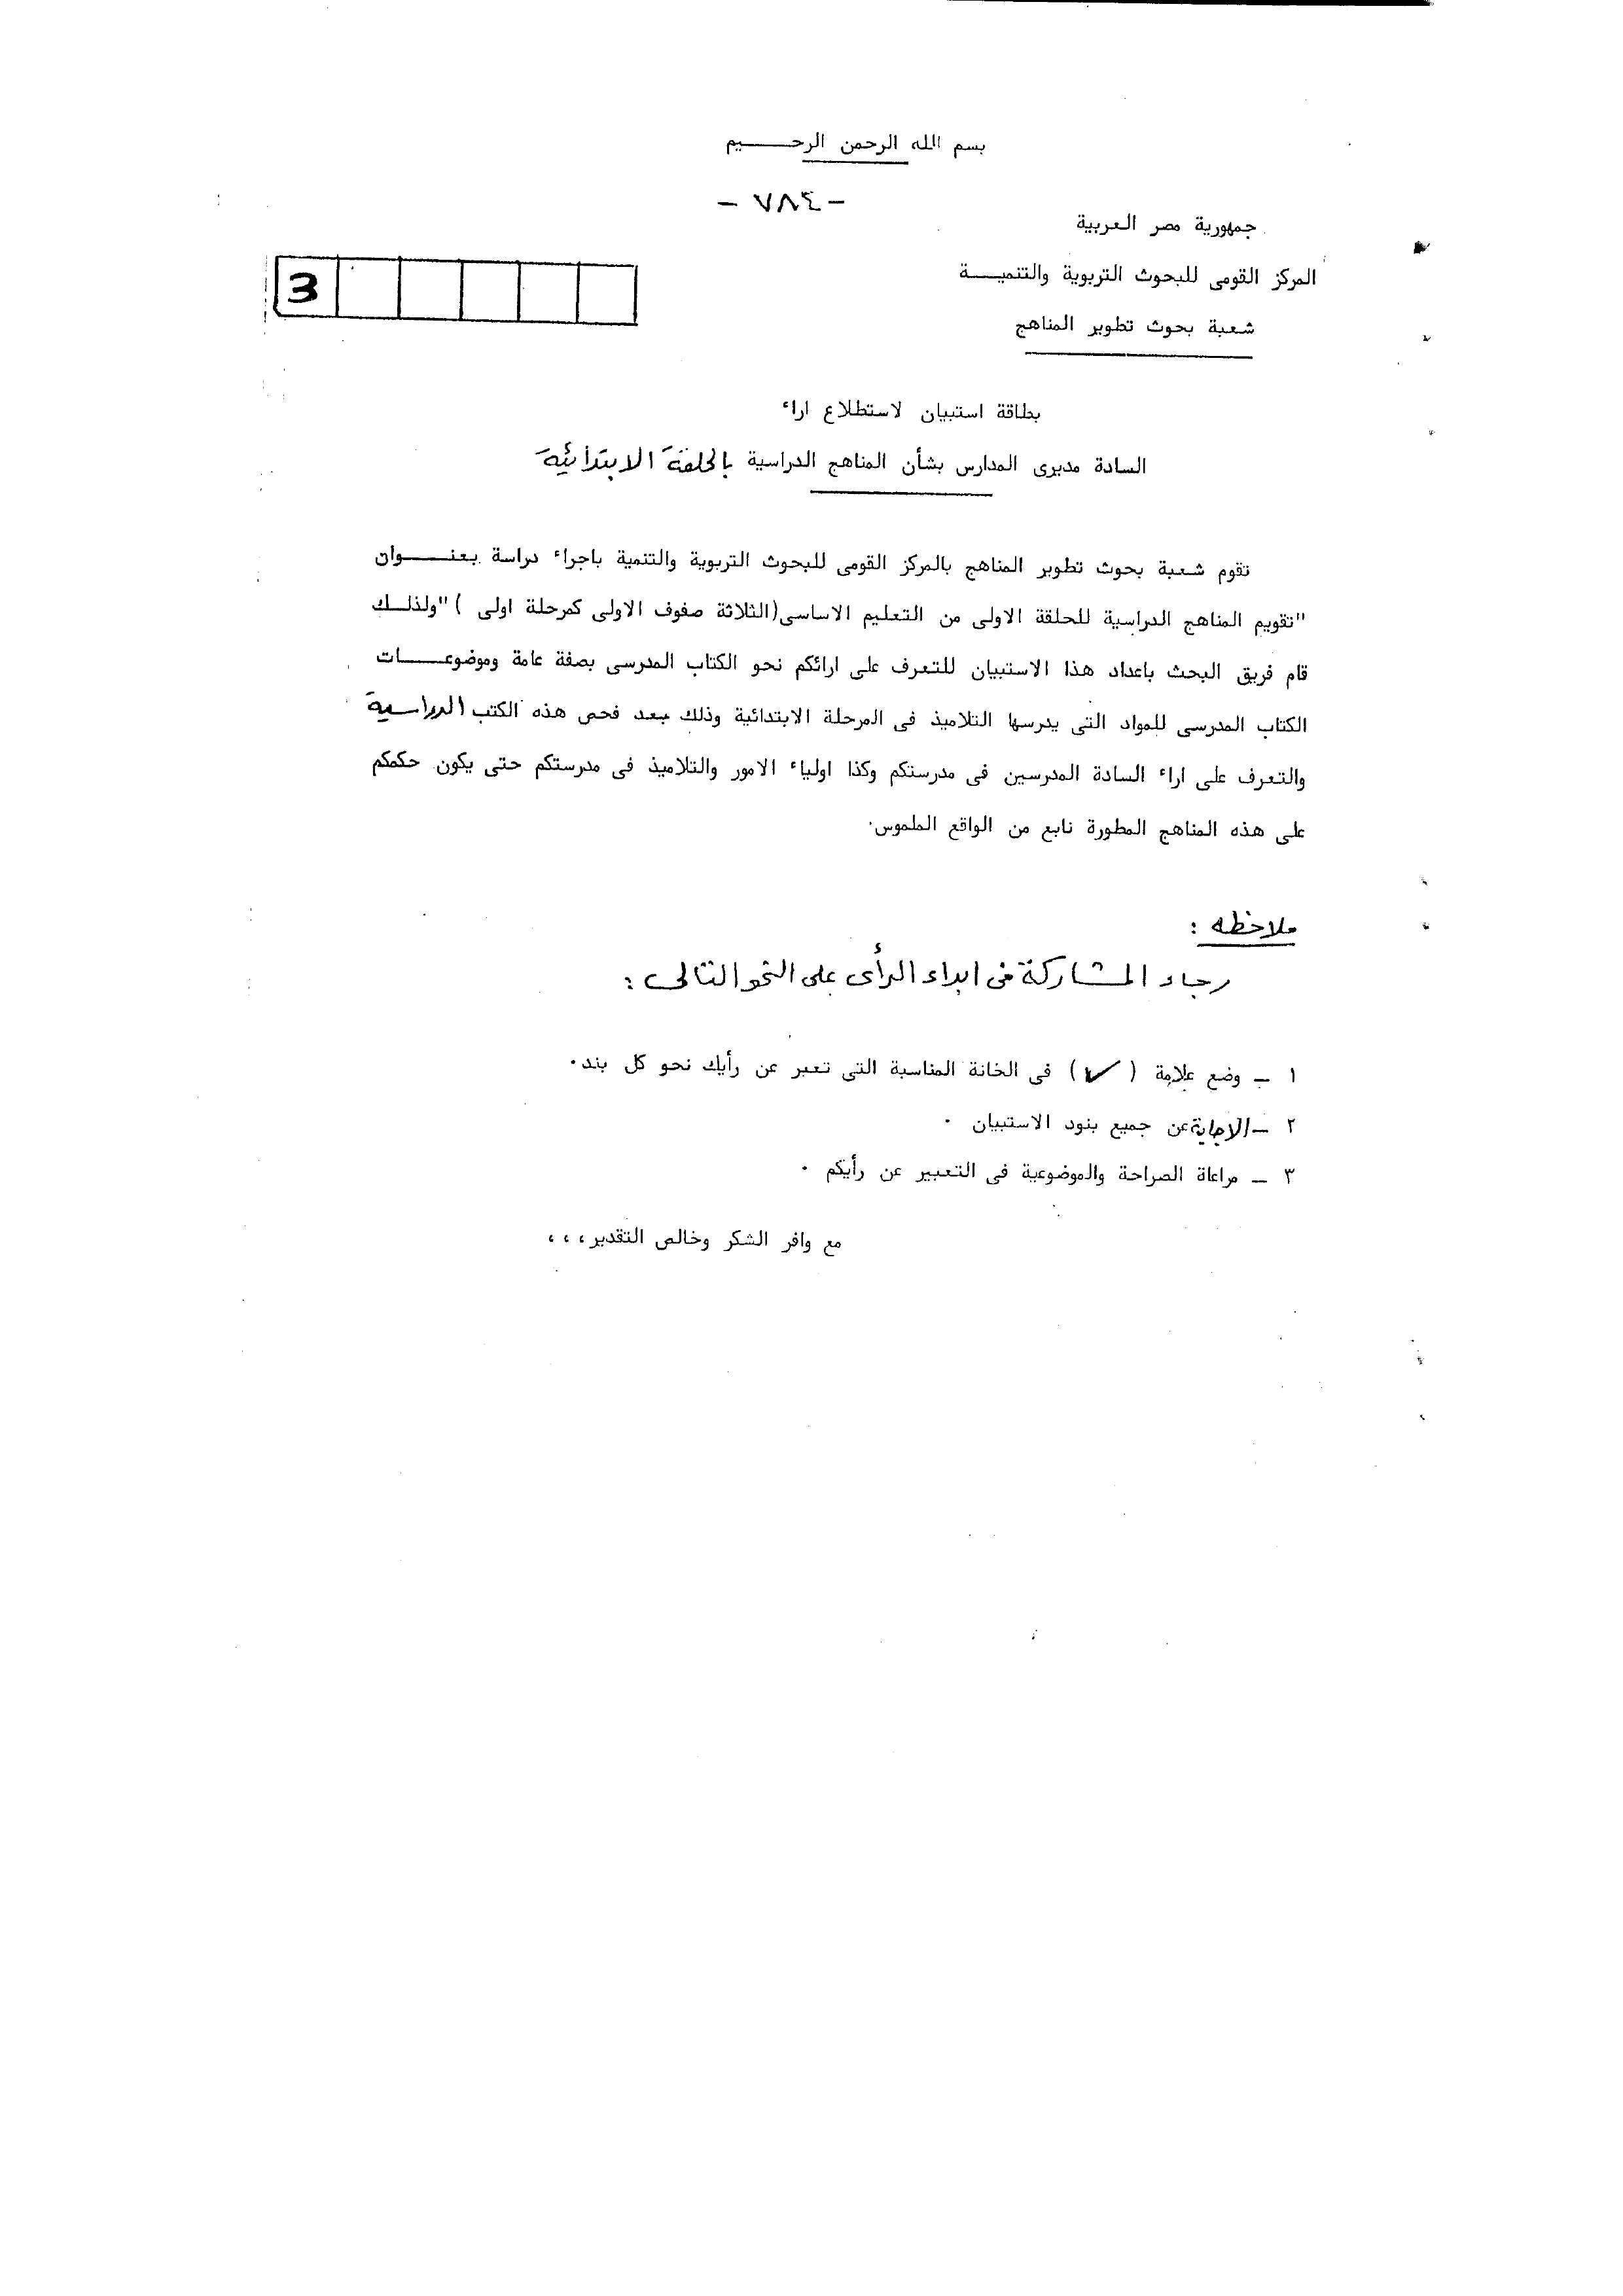 بسم الله الرحمن الرحـــــيم
- ٧٨٤ -
جمهورية مصر العربية
المركز القومى للبحوث التربوية والتنميـــة
3
شعبة بحوث تطوير المناهج
بطاقة استبيان لاستطلاع اراء
السادة مديرى المدارس بشأن المناهج الدراسية بالحلقة الابتدائية
تقوم شعبة بحوث تطوير المناهج بالمركز القومى للبحوث التربوية والتنمية باجراء دراسة بعنـــوان
"تقويم المناهج الدراسية للحلقة الاولى من التعليم الاساسى(الثلاثة صفوف الاولى كمرحلة اولى )"ولذلــك
قام فريق البحث باعداد هذا الاستبيان للتعرف على ارائكم نحو الكتاب المدرسى بصفة عامة وموضوعـــات
الكتاب المدرسى للمواد التى يدرسها التلاميذ فى المرحلة الابتدائية وذلك بعد فحص هذه الكتب الدراسية
والتعرف على اراء السادة المدرسين فى مدرستكم وكذا اولياء الامور والتلاميذ فى مدرستكم حتى يكون حكمكم
على هذه المناهج المطورة نابع من الواقع الملموس.
ملاحظه :
رجاء المشاركة فى ابداء الرأى على النحو التالى :
١ - وضع علامة ( ✓ ) فى الخانة المناسبة التى تعبر عن رأيك نحو كل بند.
٢ - الاجابة عن جميع بنود الاستبيان .
٣ - مراعاة الصراحة والموضوعية فى التعبير عن رأيكم .
مع وافر الشكر وخالص التقدير،،،